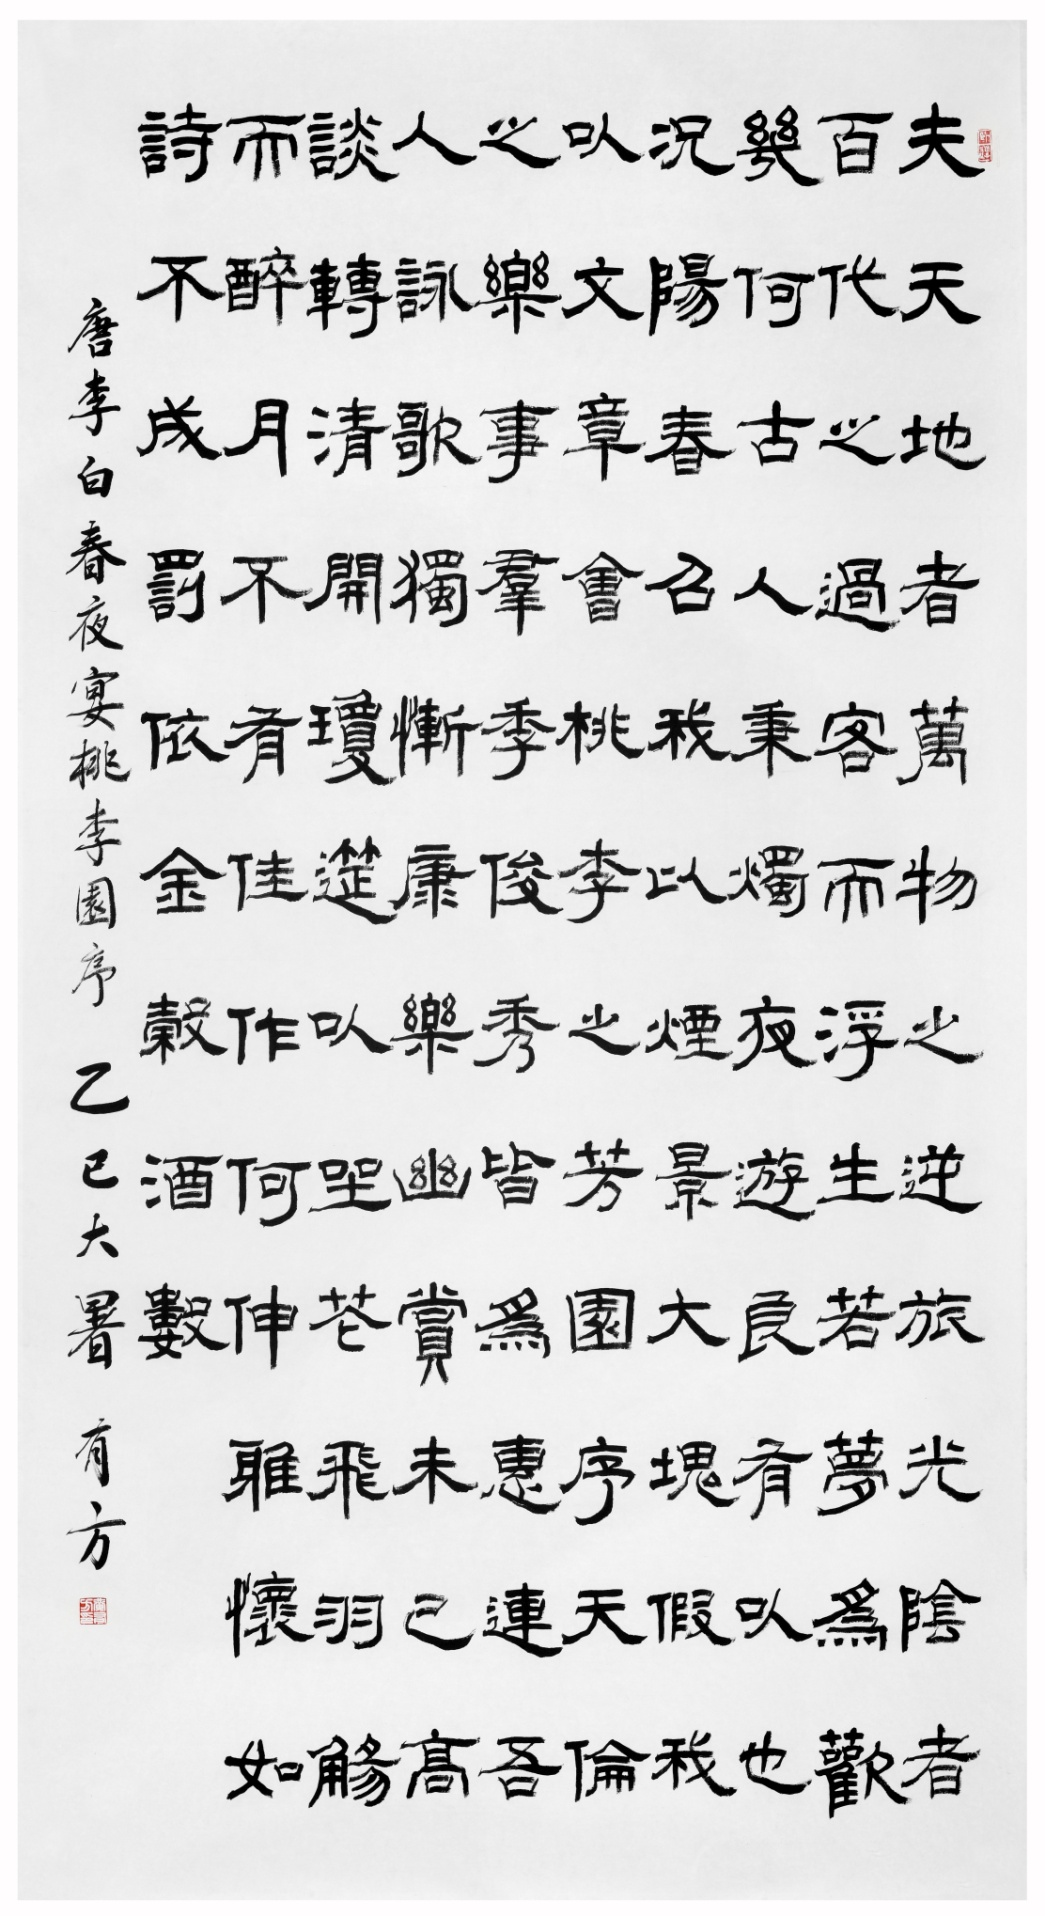 夫天地者萬物之逆旅光陰者
百代之過客而浮生若夢爲歡
幾何古人秉燭夜遊良有以也
況陽春召我以煙景大塊假我
以文章會桃李之芳園序天倫
之樂事羣季俊秀皆爲惠連吾
人詠歌獨慚康樂幽賞未已高
談轉清開瓊筵以坐花飛羽觴
而醉月不有佳作何伸雅懷如
詩不成罰依金穀酒數
唐李白春夜宴桃李園序 乙巳大暑 有方